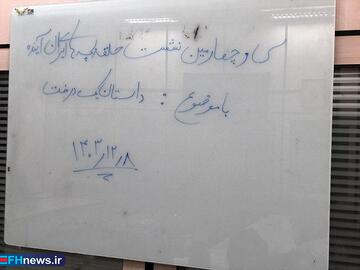 سی و چهارمین نشست حلقه بچه‌های ایران آینده
با موضوع : داستان یک درخت
۱۴۰۳/۱۲/۸
FHnews.ir